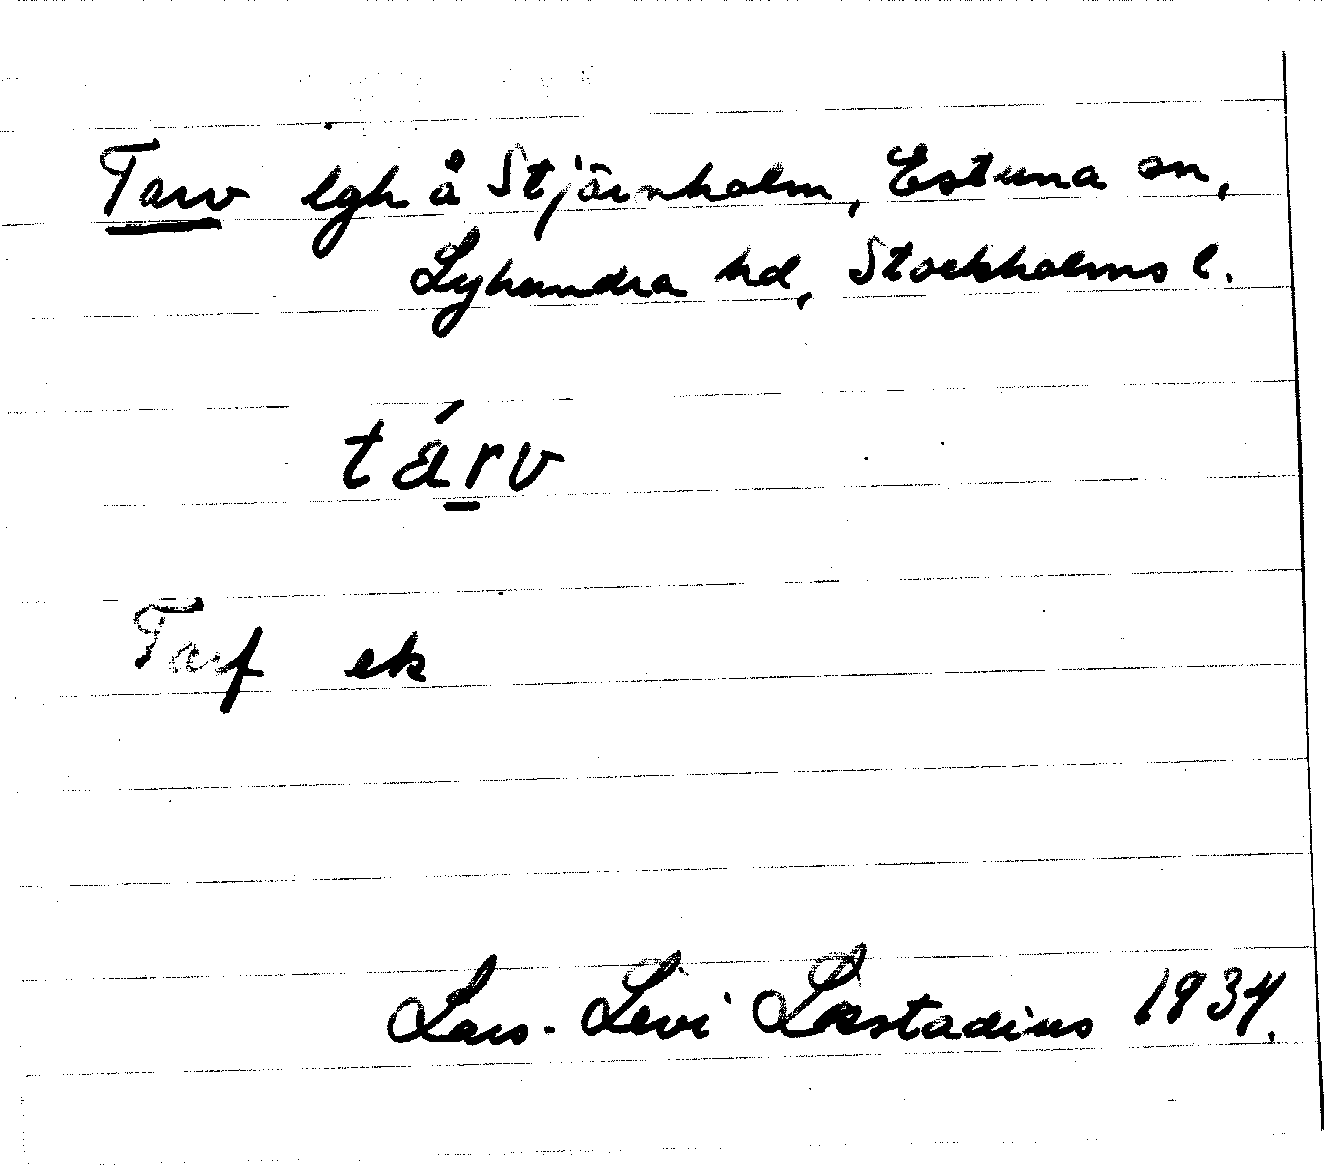 Tarv lgh å Stjärnholm, Estuna sn,
Lyhundra hd, Stockholms l.
tárv
Tarf ek
Lars-Levi Læstadius 1934.